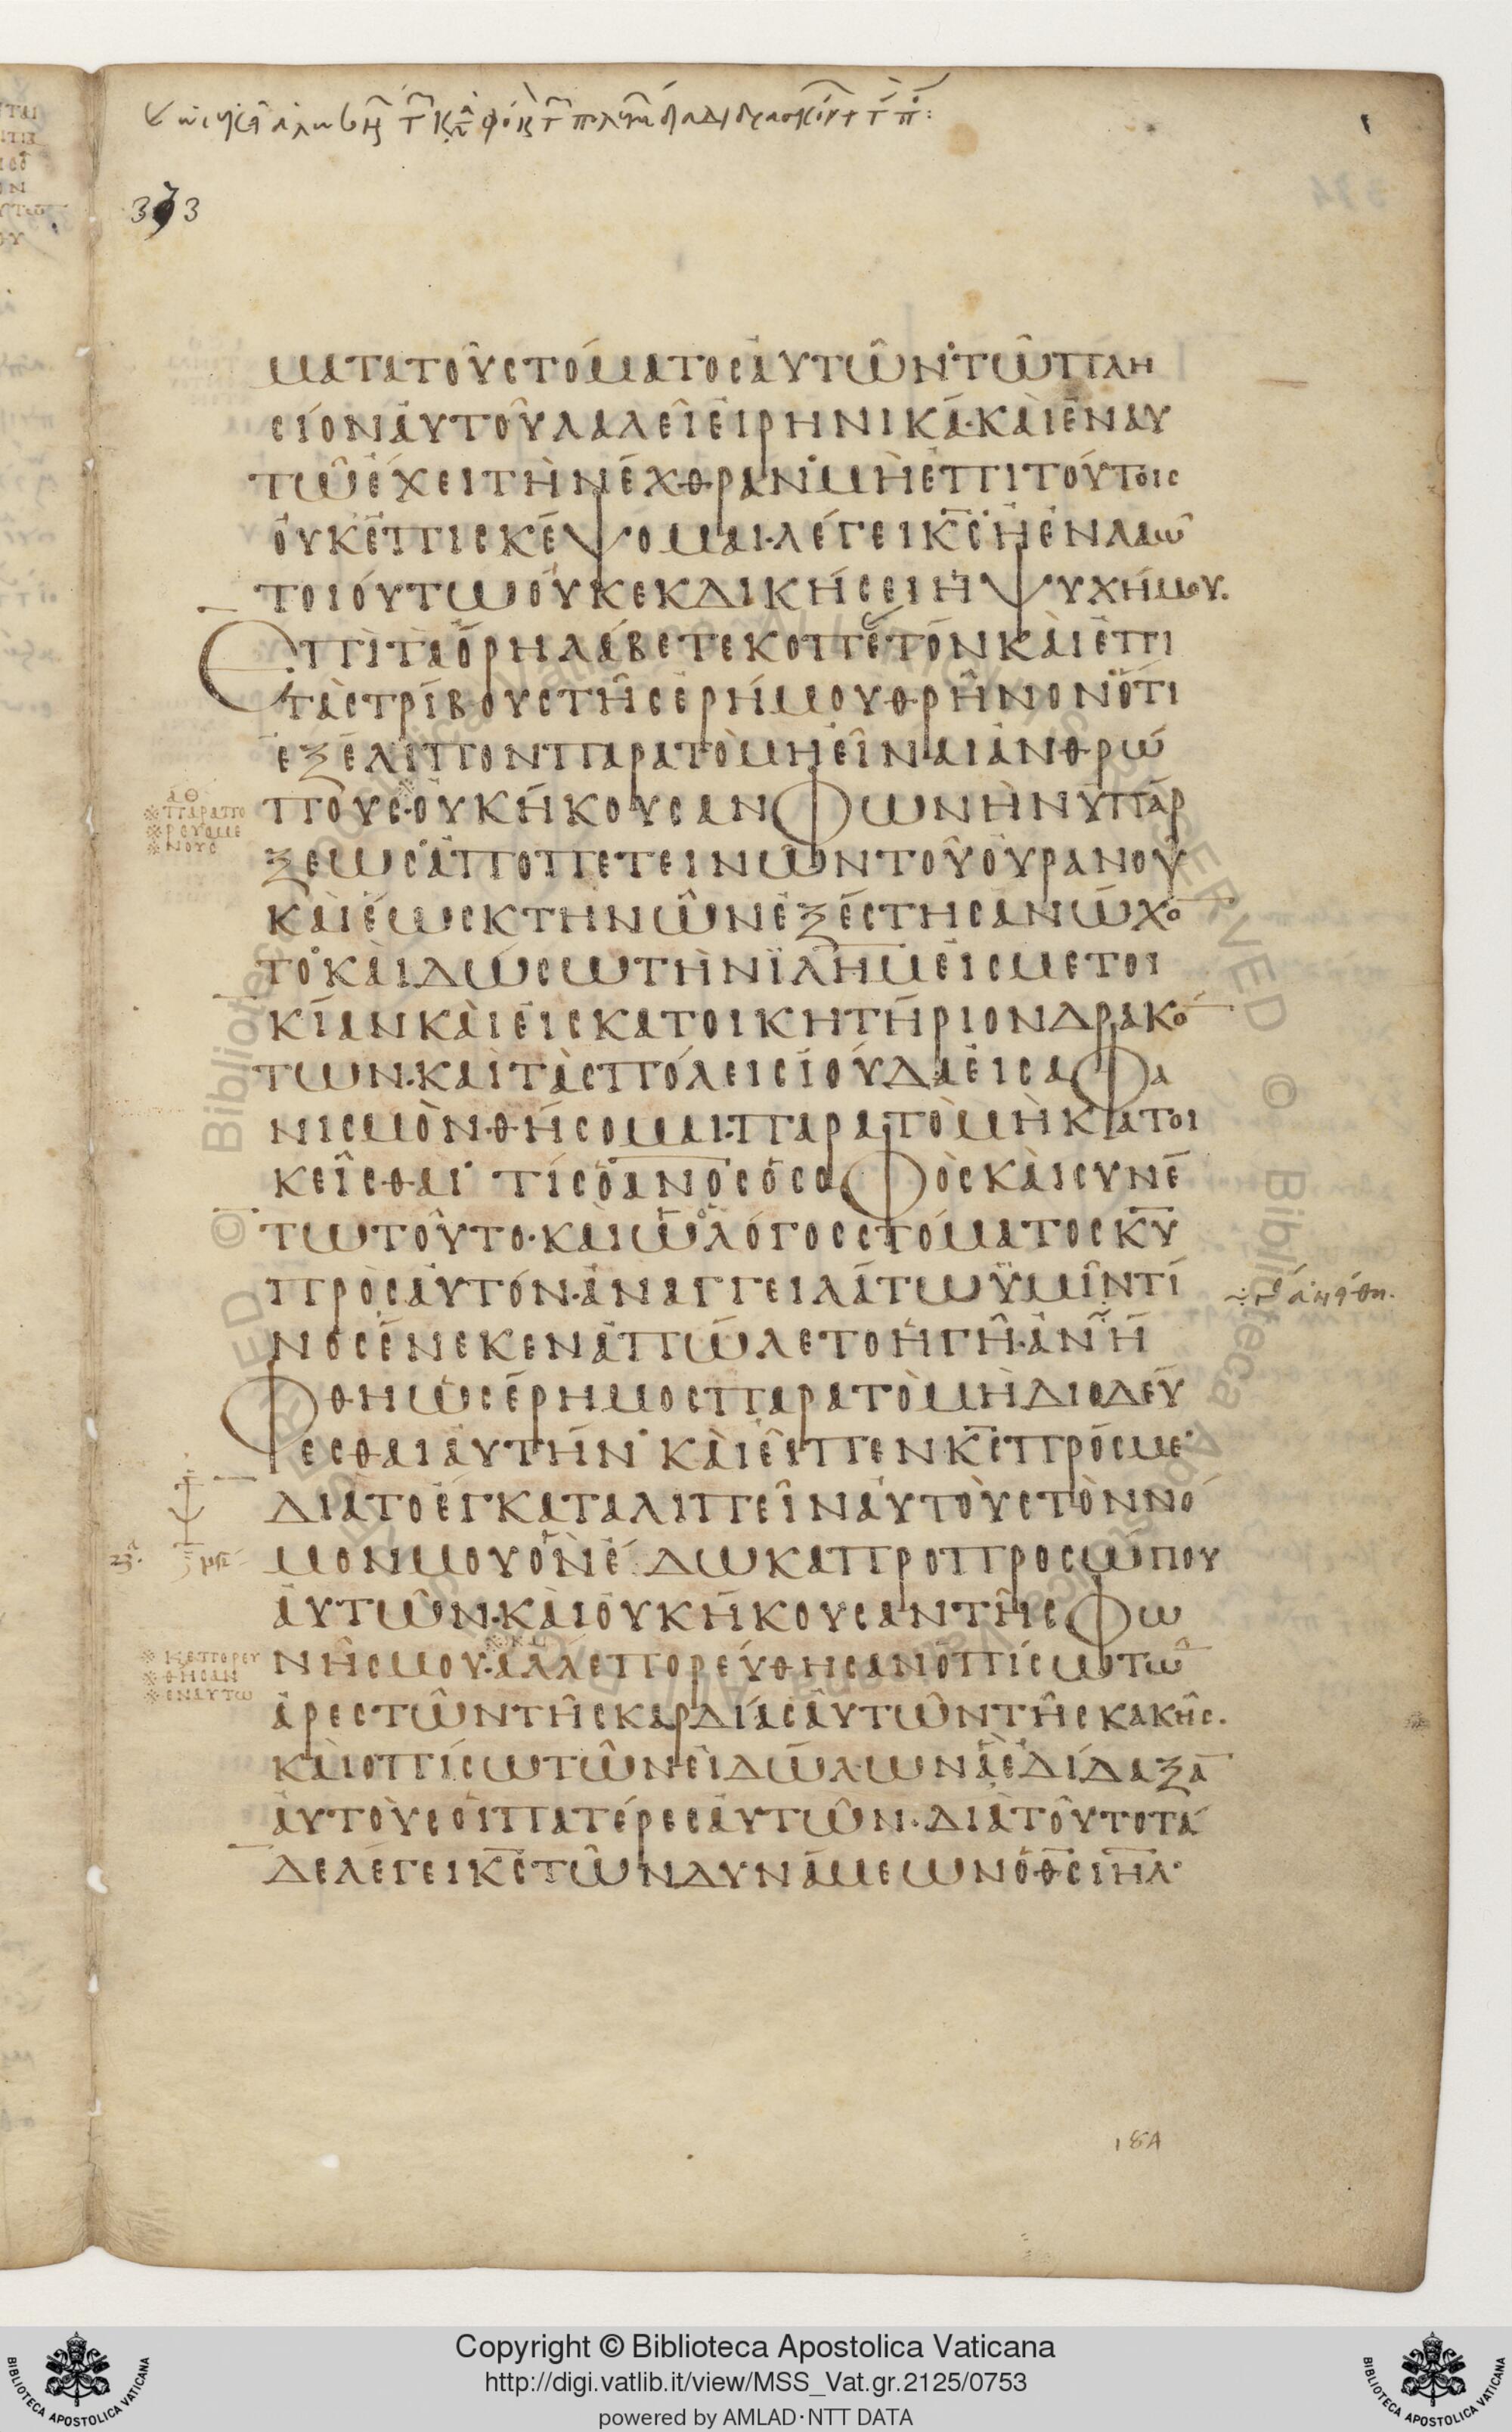 373
ματατοῦστόματοσαυτῶντῶπλη
σίοναυτοῦλαλεῖειρηνικά·καὶεναυ
τῶέχειτὴνέχθραν·μὴεπιτούτοισ
ουκεπισκέψομαι·λέγεικ̅σ̅ηενλαω
τοιούτωουκεκδικήσειηψυχήμου.
Επὶτὰόρηλάβετεκοπετόνκαὶεπι
τὰστρίβουστῆσερήμουθρῆνονότι
εξέλιπονπαρατὸμηεῖναιανθρώ
πουσ·ουκήκουσανφωνὴνυπάρ
ξεωσ·αποπετεινῶντοῦουρανοῦ
καὶέωσκτηνῶνεξέστησανώχο̅
το·καὶδώσωτὴνϊλη̅μ̅εισμετοι
κίανκαὶεισκατοικητήριονδρακο̅
των·καὶτὰσπόλεισϊούδαεισαφα
νισμὸν·θήσομαι·παρατὸμὴκατοι
κεῖσθαι· τίσοα̅ν̅ο̅σ̅όσοφὸσκαὶσυνέ
τωτοῦτο·καὶῶλόγοσστόματοσκ̅υ̅
πρὸσαυτόν·αναγγειλάτωϋμῖντί
νοσένεκεναπώλετοηγῆ·ανή
φθηωσέρημοσπαρατὸμὴδιοδεύ
εσθαιαυτήν· καὶεῖπενκ̅σ̅πρόσμε·
διὰτοεγκαταλιπεῖναυτοὺστὸννό
μονμουὸνέδωκαπροπροσώπου
αυτῶν·καὶουκήκουσαντῆσφω
νῆσμου·αλλεπορεύθησανοπίσωτω̅
αρεστῶντῆσκαρδίασαυτῶντῆσκακῆσ.
καὶοπίσωτῶνειδώλωνὰεδίδαξα̅
αυτοὺσοιπατέρεσαυτῶν·διὰτοῦτοτά
δελέγεικ̅σ̅τῶνδυνάμεωνοθ̅σ̅ι̅η̅λ̅·
α θ
※παραπο
※ρευομε
※νουσ
※κεπορευ
※θησαν
※εναυτω
184
© Biblioteca Apostolica Vaticana. ALL RIGHTS RESERVED
Copyright © Biblioteca Apostolica Vaticana
http://digi.vatlib.it/view/MSS_Vat.gr.2125/0753
powered by AMLAD·NTT DATA
BIBLIOTECA APOSTOLICA VATICANA
BIBLIOTECA APOSTOLICA VATICANA